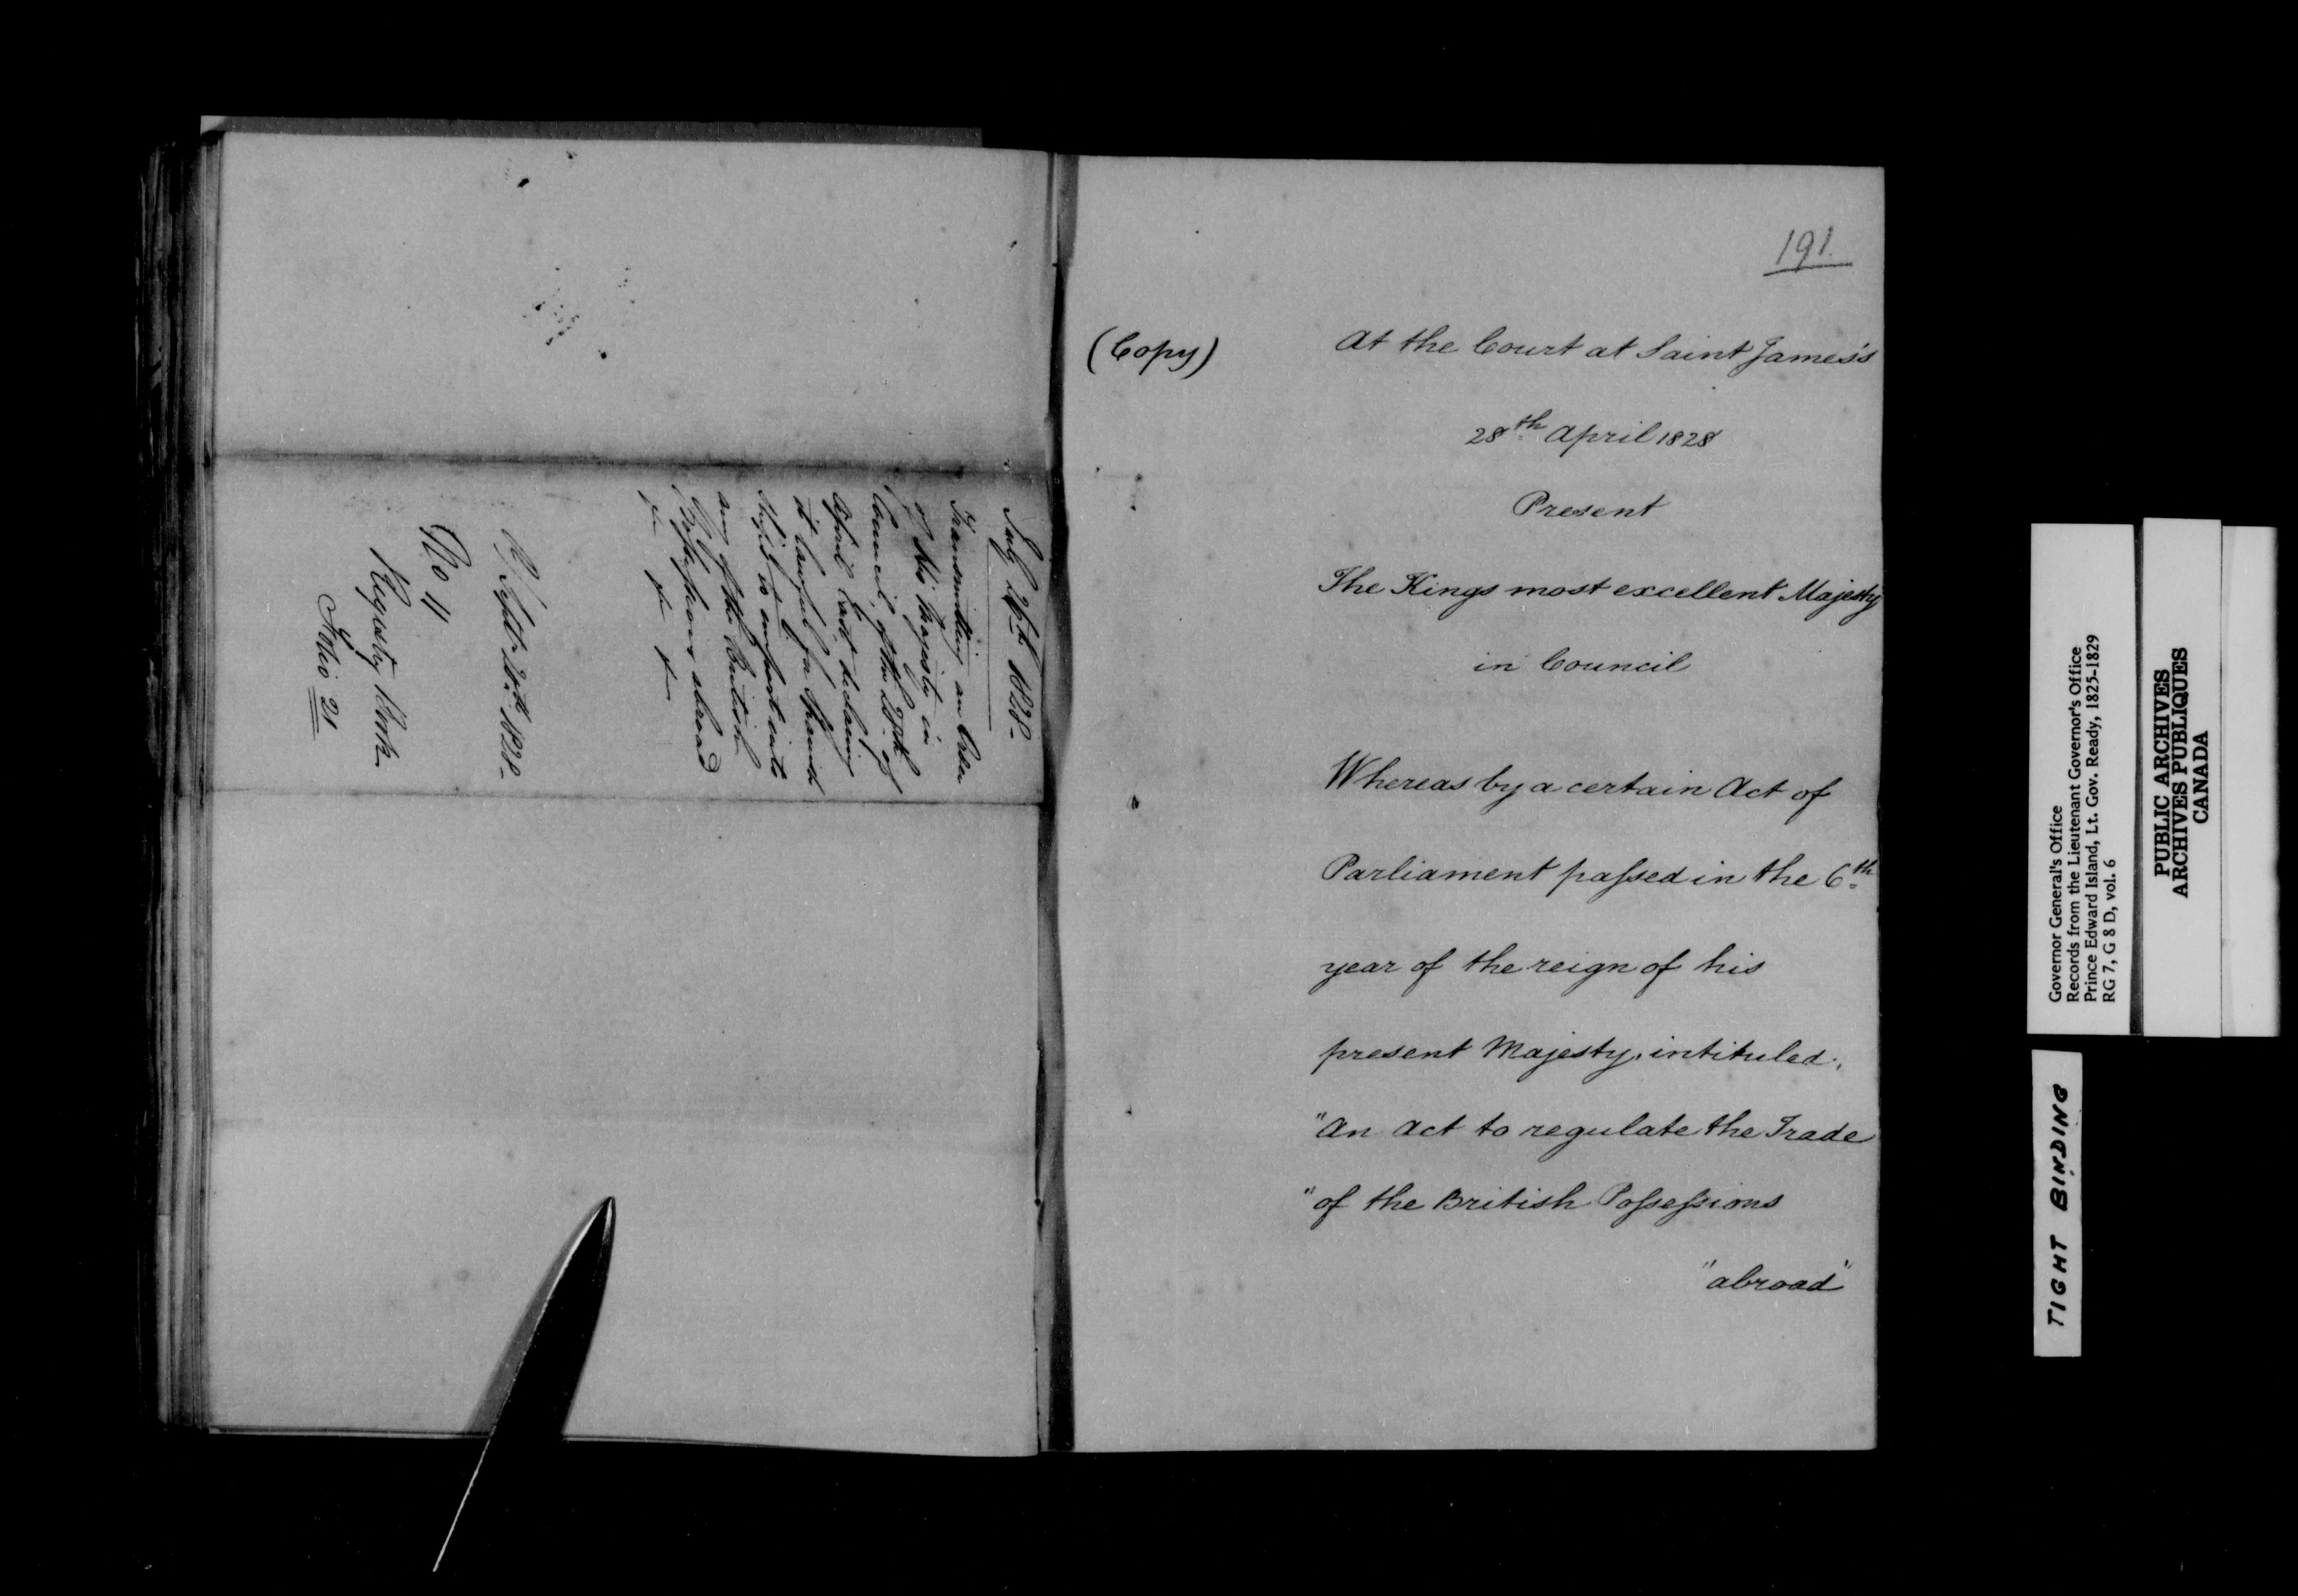 July 26th 1828-
Transmitting an Order
of His Majesty in
Council, of the 28th of
April last declaring
it lawful for Spanish
Ships to import into
any of the British
Possessions abroad
&c &c &c
R/ Septr 20th 1828-
No 11
Registry Book
Folio 21
191.
(Copy)
At the Court at Saint James's
28th April 1828
Present
The Kings most excellent Majesty
in Council
Whereas by a certain Act of
Parliament passed in the 6th
year of the reign of his
present Majesty, intituled,
"An Act to regulate the Trade
"of the British Possessions
"abroad"
Governor General's Office
Records from the Lieutenant Governor's Office
Prince Edward Island, Lt. Gov. Ready, 1825-1829
RG 7, G 8 D, vol. 6
PUBLIC ARCHIVES
ARCHIVES PUBLIQUES
CANADA
TIGHT BINDING